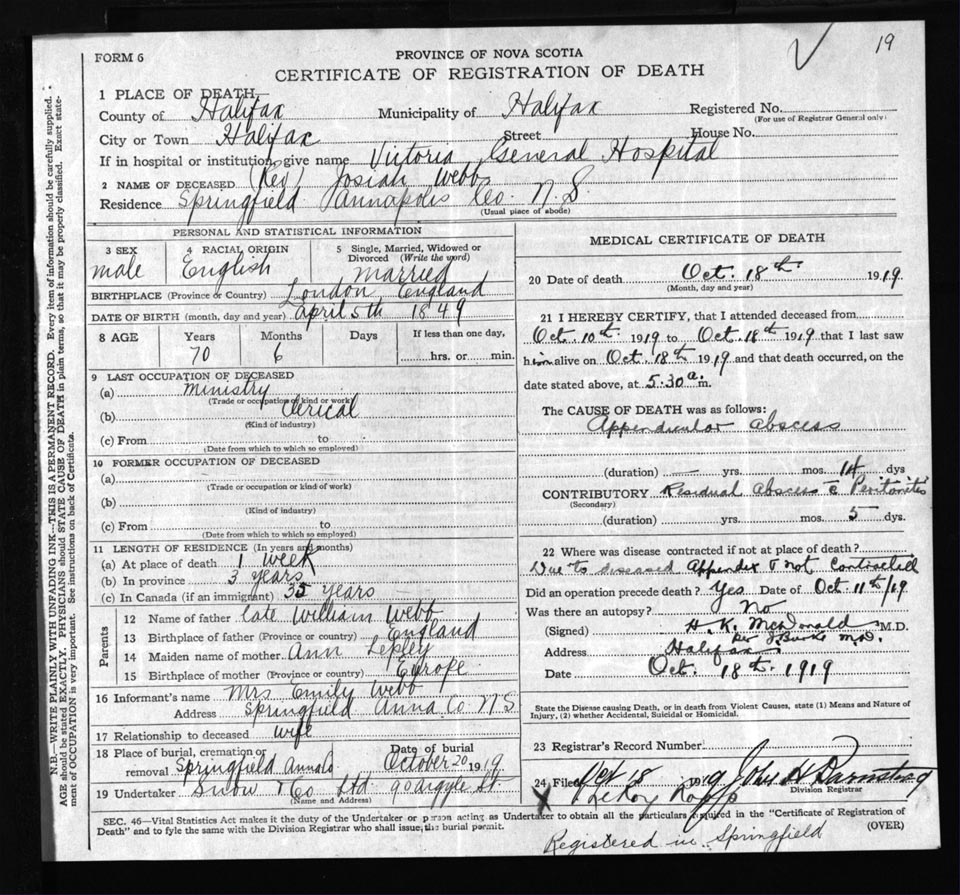 19
FORM 6
PROVINCE OF NOVA SCOTIA
CERTIFICATE OF REGISTRATION OF DEATH
1 PLACE OF DEATH,
County of Halifax Municipality of Halifax Registered No.
(For use of Registrar General only)
City or Town Halifax Street House No.
If in hospital or institution, give name Victoria General Hospital
2 NAME OF DECEASED (Rev) Josiah Webb
Residence Springfield Annapolis Co. N.S.
(Usual place of abode)
PERSONAL AND STATISTICAL INFORMATION
3 SEX 4 RACIAL ORIGIN 5 Single, Married, Widowed or Divorced (Write the word)
male English married
BIRTHPLACE (Province or Country) London England
DATE OF BIRTH (month, day and year) April 5th 1849
8 AGE Years Months Days If less than one day,
70 6 hrs. or min.
9 LAST OCCUPATION OF DECEASED
(a) Ministry
(Trade or occupation of kind or work)
(b) Clerical
(Kind of industry)
(c) From to
(Date from which to which so employed)
10 FORMER OCCUPATION OF DECEASED
(a)
(Trade or occupation or kind of work)
(b)
(Kind of industry)
(c) From to
(Date from which to which so employed)
11 LENGTH OF RESIDENCE (In years and months)
(a) At place of death 1 week
(b) In province 3 years
(c) In Canada (if an immigrant) 35 years
Parents
12 Name of father late William Webb
13 Birthplace of father (Province or country) England
14 Maiden name of mother Ann Lepley
15 Birthplace of mother (Province or country) Europe
16 Informant's name Mrs Emily Webb
Address Springfield Anna Co N S
17 Relationship to deceased wife
18 Place of burial, cremation or removal Springfield Date of burial October 20 1919
19 Undertaker Snow & Co Ltd. 90 Argyle St.
(Name and Address)
MEDICAL CERTIFICATE OF DEATH
20 Date of death Oct. 18th 1919
(Month, day and year)
21 I HEREBY CERTIFY, that I attended deceased from
Oct. 10th 1919 to Oct. 18th 1919 that I last saw
him alive on Oct. 18th 1919 and that death occurred, on the
date stated above, at 5:30 a.m.
The CAUSE OF DEATH was as follows:
Appendicular abscess
(duration) — yrs. mos. 14 dys
CONTRIBUTORY Residual abscess c̄ Peritonitis
(Secondary)
(duration) yrs. mos. 5 dys.
22 Where was disease contracted if not at place of death?
Due to diseased Appendix & not contracted
Did an operation precede death? Yes Date of Oct. 11th/19
Was there an autopsy? No
(Signed) H. K. McDonald M.D.
per M.D.
Address Halifax
Date Oct. 18th. 1919
State the Disease causing Death, or in death from Violent Causes, state (1) Means and Nature of
Injury, (2) whether Accidental, Suicidal or Homicidal.
23 Registrar's Record Number
24 Filed Oct 18 1919 John H Barnstead
Division Registrar
X
SEC. 46—Vital Statistics Act makes it the duty of the Undertaker or person acting as Undertaker to obtain all the particulars required in the "Certificate of Registration of
Death" and to fyle the same with the Division Registrar who shall issue the burial permit. (OVER)
Registered in Springfield
N.B.—WRITE PLAINLY WITH UNFADING INK—THIS IS A PERMANENT RECORD. Every item of information should be carefully supplied.
AGE should be stated EXACTLY. PHYSICIANS should STATE CAUSE OF DEATH in plain terms, so that it may be properly classified. Exact statement of OCCUPATION is very important. See instructions on back of Certificate.